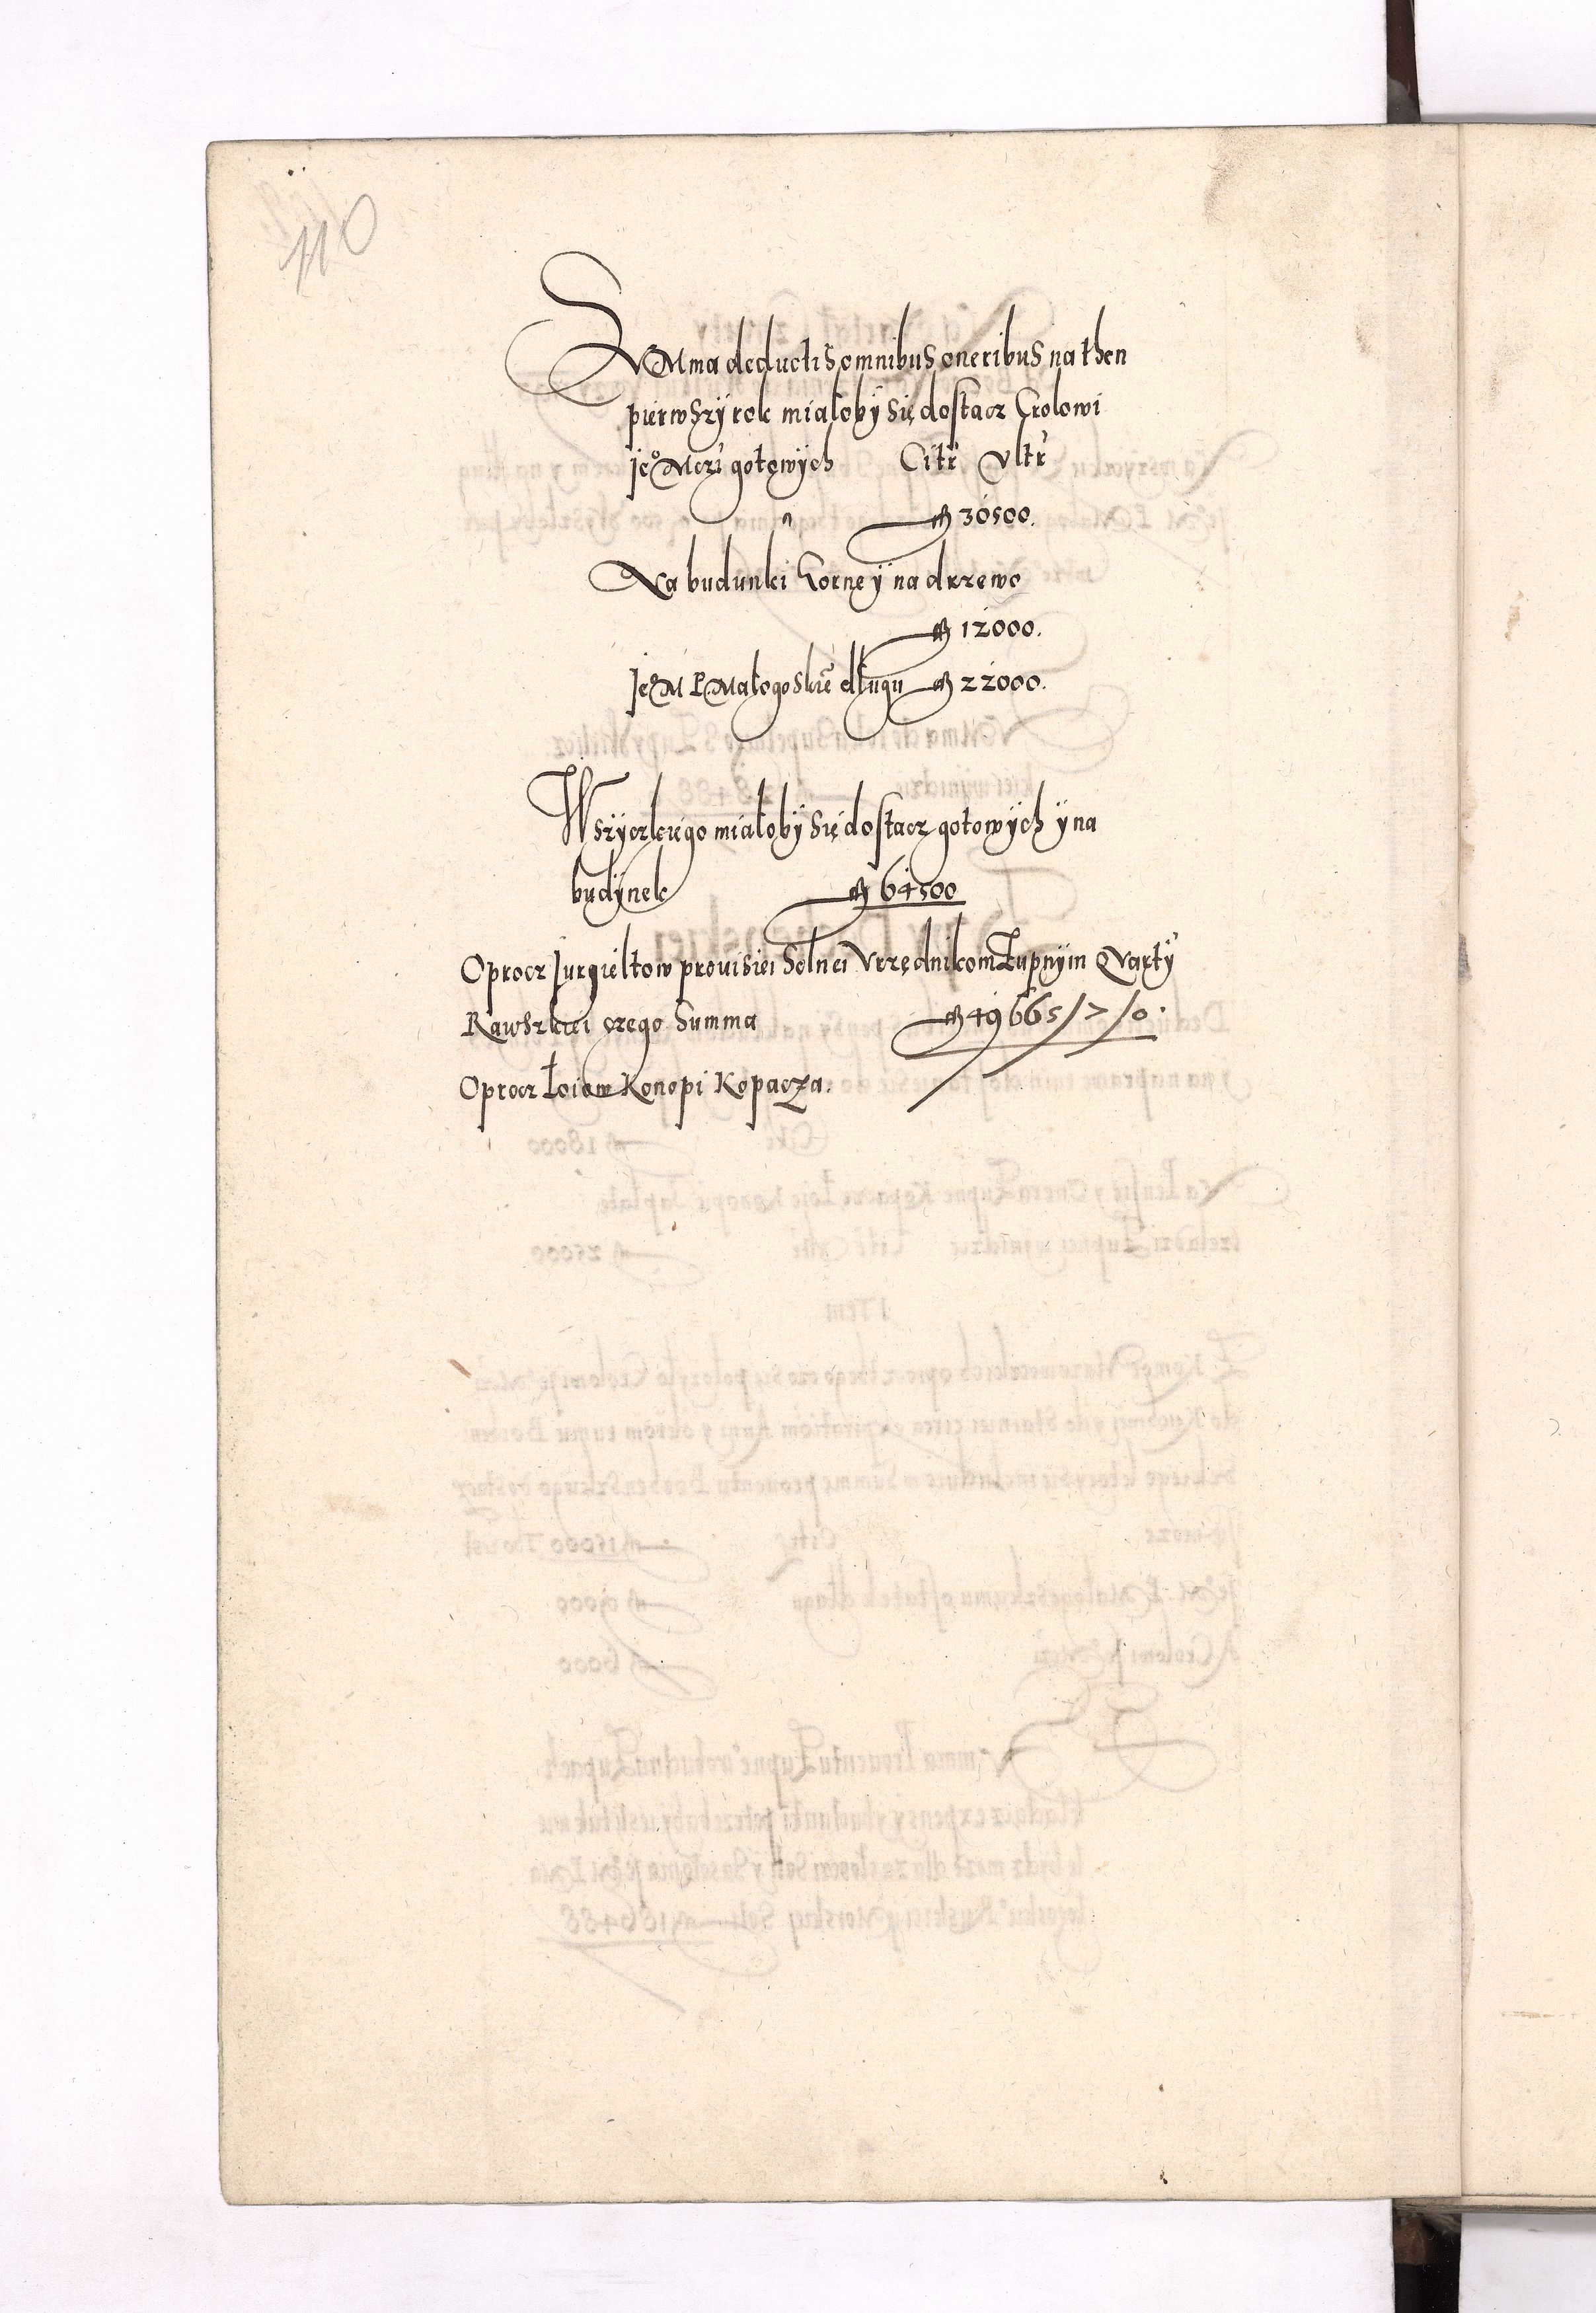 110
SVMma deductis omnibus oneribus na then
pierwszÿ rok miałobÿ się dostacz Crolowi
Jeº Mczi gotowÿch Citr Vltr
fl 30500.
Na budunki Gorne ÿ na drzewo
fl 12000.
Jeº M P Małogoskie długu fl 22000.
Wszÿczkiego miałobÿ się dostacz gotowÿch ÿ na
budÿnek fl 64500
Oprocz Jurgieltow prouisiei Solnei Vrzędnikom Zupnÿm Qvartÿ
Rawszkiei czego Summa fl 49665/7/0.
Oprocz Łoiow Konopi Kopacza.